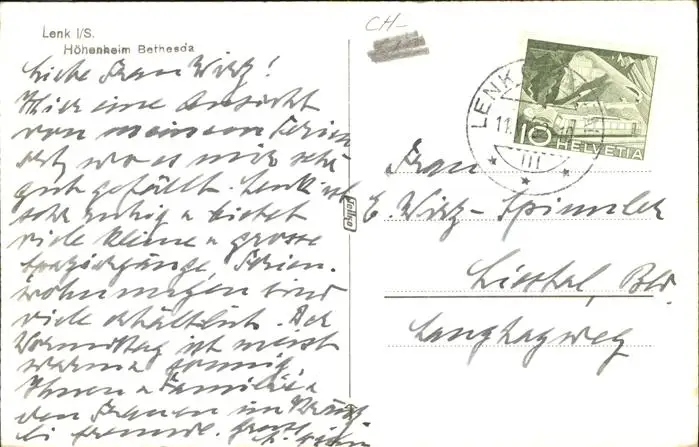 Lenk I/S.
Höhenheim Bethesda
Liebe Frau Wirz!
Hier eine Ansicht
von meinem Ferien
wo es mir sehr
gut gefällt. Lenk ist
sehr ruhig u bietet
viele kleine u grosse
Spaziergänge, Ferien-
wohnungen sind
viele erhältlich. Der
Vormittag ist meist
warm u sonnig.
Ihnen u Familie u
den Frauen im
freundl. Grüsse
CH-
LENK
11.
10
HELVETIA
III
Frau
E. Wirz-Spinnler
Liestal, Bld.
Langhagweg